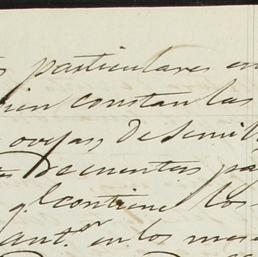 particulares en
constan las
ovejas, de Semill
de cuentas pa
ql contiene los
ant.r en los me